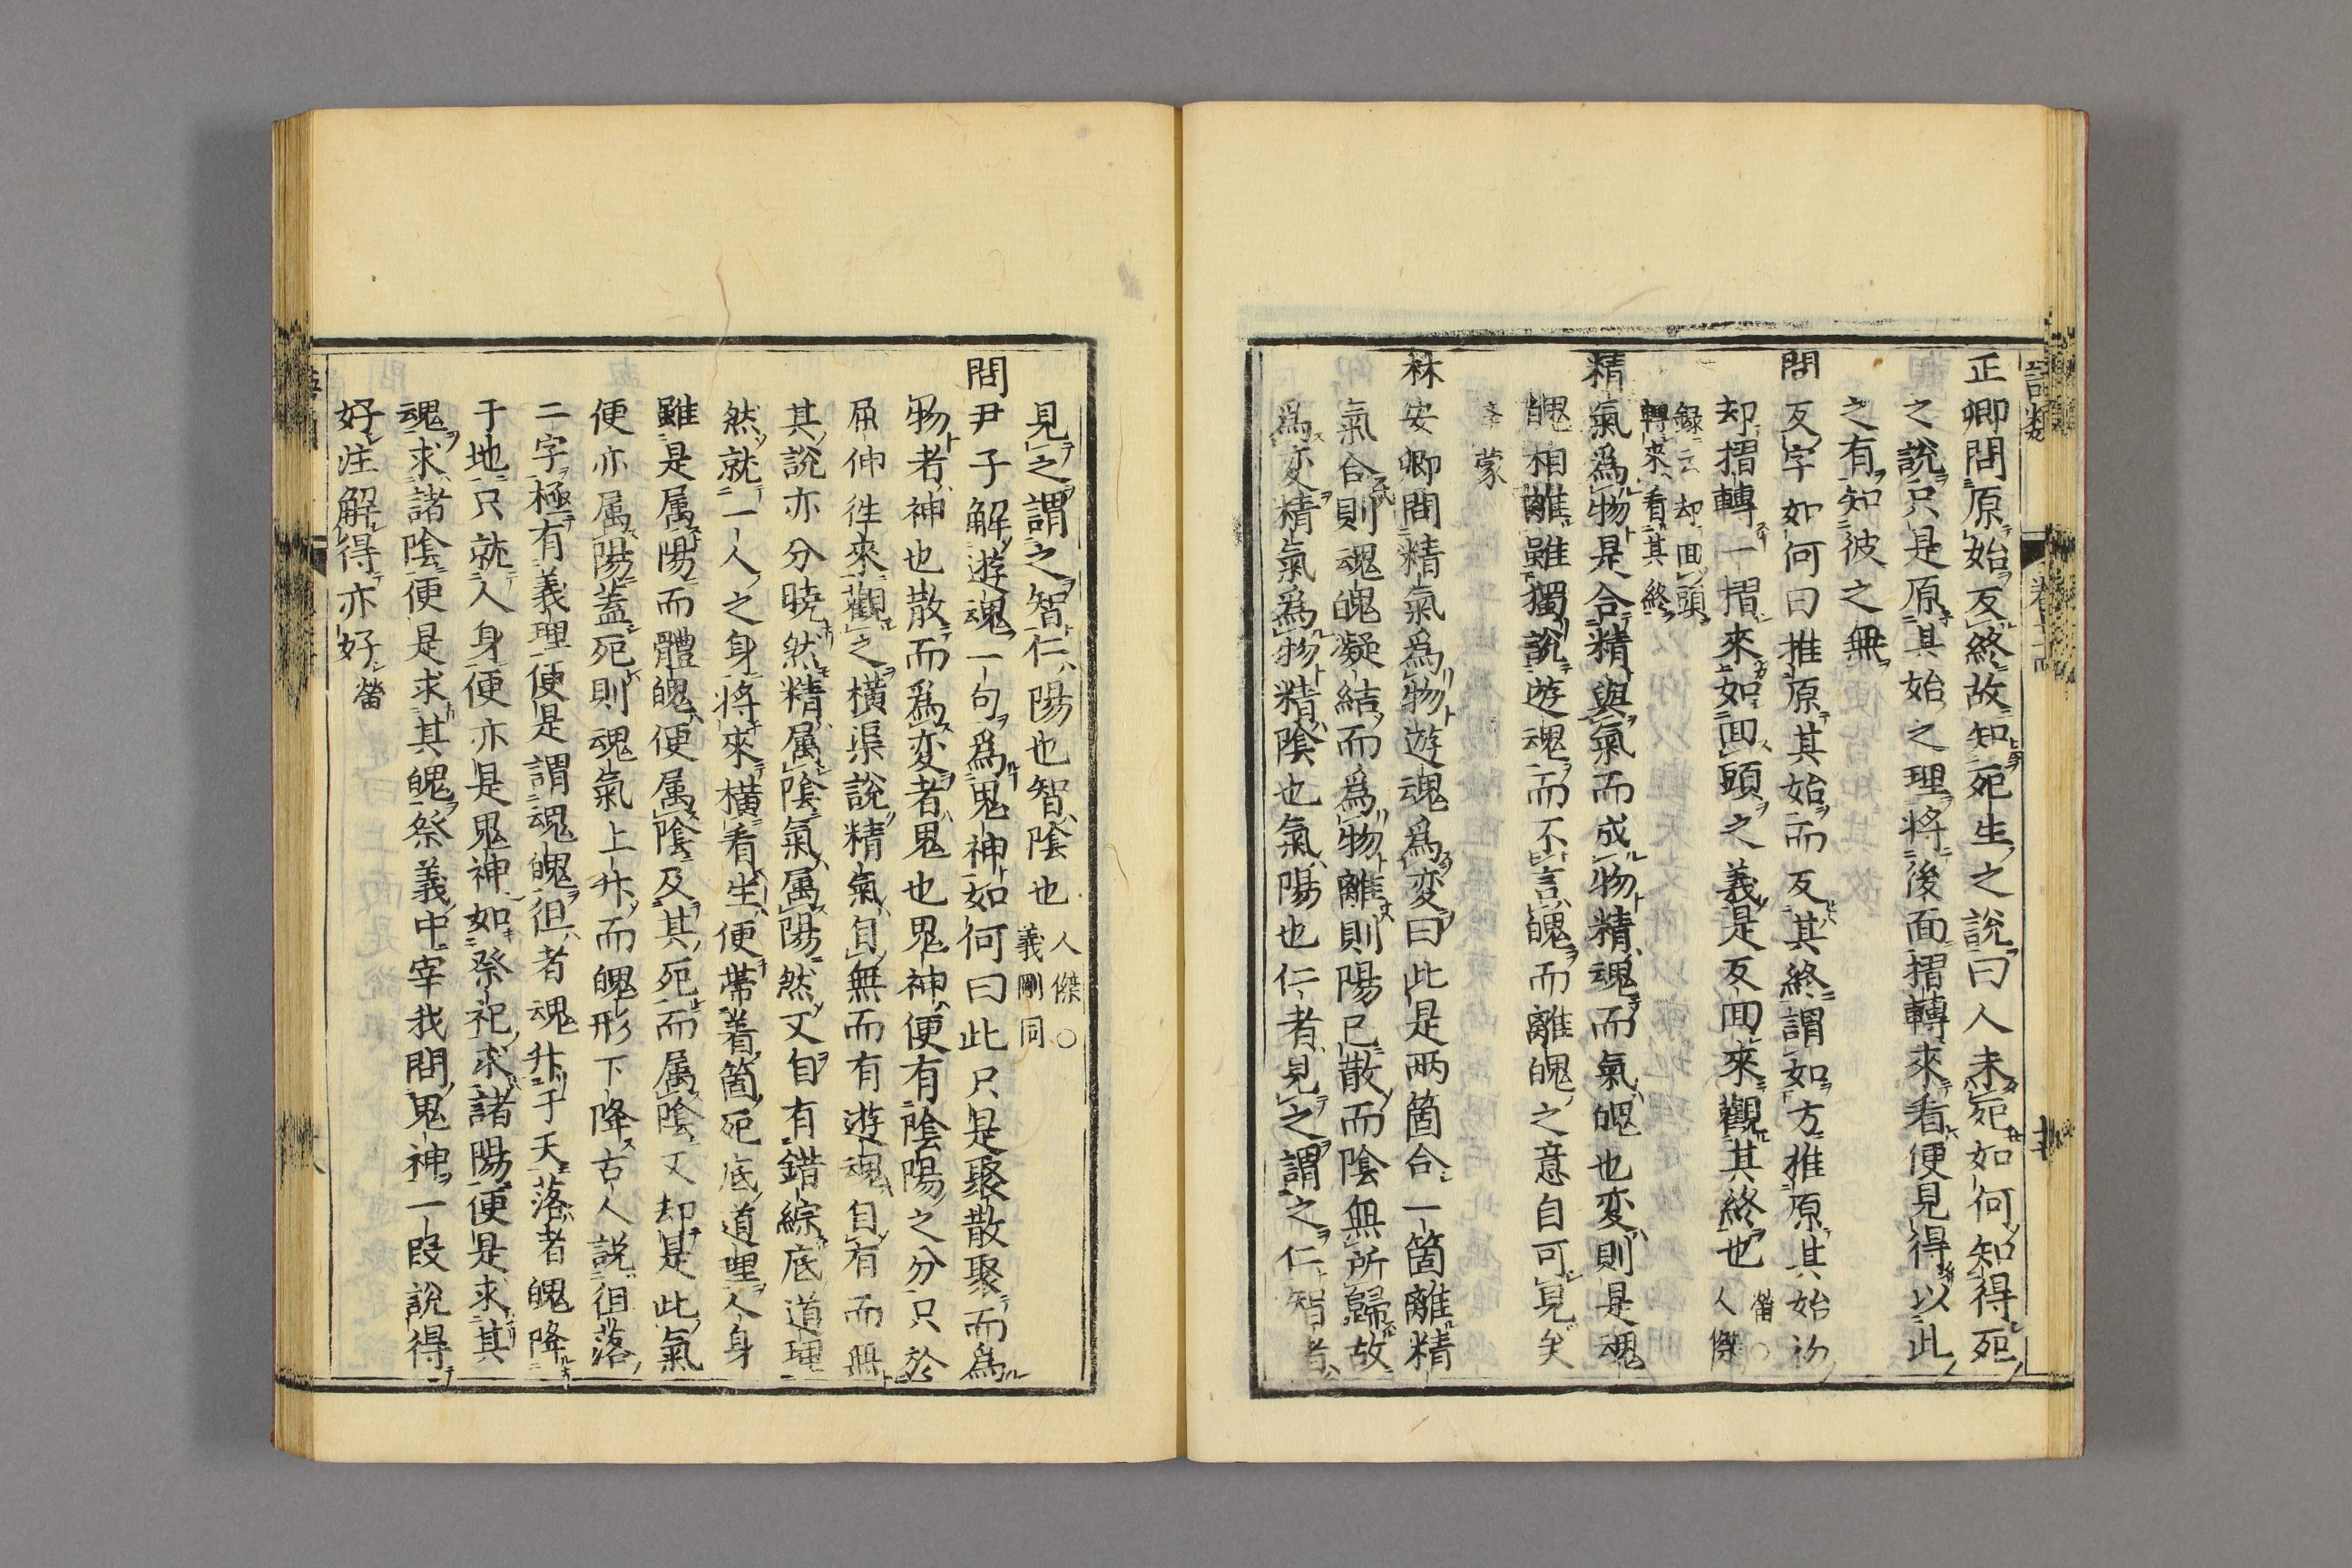 正卿問原始反終故知死生之說曰人未死如何知得死
之說只是原其始之理將後面摺轉來看便見得以此
之有知彼之無
問反字如何曰推原其始而反其終謂如方推原其始初
却摺轉一摺來如回頭之義是反回來觀其終也 㽦○人傑
錄云却回頭
轉來看其終
精氣爲物是合精與氣而成物精魂而氣魄也変則是魂
魄相離雖獨說遊魂而不言魄而離魄之意自可見矣
林安卿問精氣爲物遊魂爲変曰此是両箇合一箇離精
氣合則魂魄凝結而爲物離則陽已散而陰無所歸故
爲変精氣爲物精陰也氣陽也仁者見之謂之仁智者
見之謂之智仁陽也智陰也 人傑○
義剛同
問尹子解遊魂一句爲鬼神如何曰此只是聚散聚而爲
物者神也散而爲変者鬼也鬼神便有陰陽之分只於
屈伸徃來觀之橫渠說精氣自無而有遊魂自有而無
其說亦分曉然精属陰氣属陽然又自有錯綜底道理
然就一人之身將來橫看生便帶着箇死底道理人身
雖是属陽而體魄便属陰及其死而属陰又却是此氣
便亦属陽蓋死則魂氣上升而魄形下降古人說徂落
二字極有義理便是謂魂魄徂者魂升于天落者魄降
于地只就人身便亦是鬼神如祭祀求諸陽便是求其
魂求諸陰便是求其魄祭義中宰我問鬼神一段說得
好注解得亦好 㽦